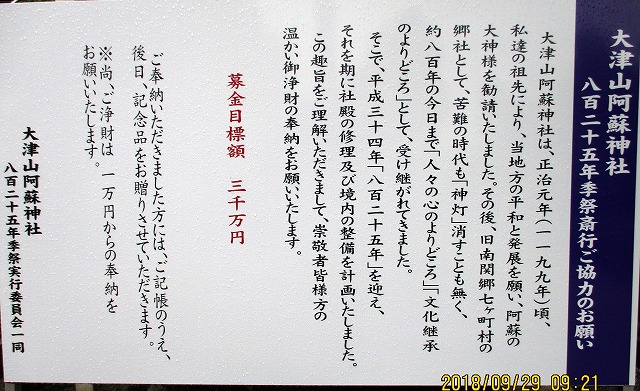 大津山阿蘇神社
八百二十五年季祭斎行ご協力のお願い
大津山阿蘇神社は、正治元年(一一九九年)頃、
私達の祖先により、当地方の平和と発展を願い、阿蘇の
大神様を勧請いたしました。その後、旧南関郷七ヶ町村の
郷社として、苦難の時代も「神灯」消すことも無く、
約八百年の今日まで「人々の心のよりどころ」「文化継承
のよりどころ」として、受け継がれてきました。
そこで、平成三十四年「八百二十五年」を迎え、
それを期に社殿の修理及び境内の整備を計画いたしました。
この趣旨をご理解いただきまして、崇敬者皆様方の
温かい御浄財の奉納をお願いいたします。
募金目標額 三千万円
ご奉納いただきました方には、ご記帳のうえ、
後日、記念品をお贈りさせていただきます。
※尚、ご浄財は 一万円からの奉納を
お願いいたします。
大津山阿蘇神社
八百二十五年季祭実行委員会一同
2018/09/29 09:21